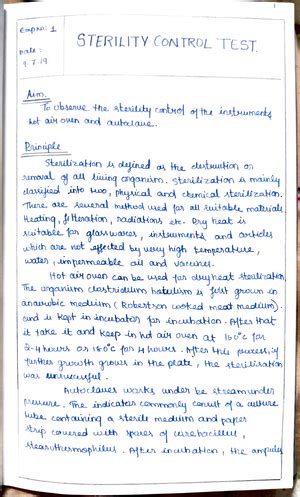 Exp No: 1
Date:
9.7.19
STERILITY CONTROL TEST.
Aim.
To observe the sterility control of the instruments
hot air oven and autoclave.
Principle
Sterilization is defined as the destruction or
removal of all living organism. Sterilization is mainly
classified into two, physical and chemical sterilization.
There are several method used for all suitable materials
Heating, filteration, radiations etc. Dry heat is
suitable for glasswares, instruments and articles
which are not effected by very high temperature,
water, impermeable oil and vaccines.
Hot air oven can be used for dry heat sterilisation
The organism clostridium botulism is first grown in
anarobic medium (Robertson cooked meat medium).
and is kept in incubator for incubation. After that
it take it and keep in hot air oven at 160°c for
2-4 hours or 180°c for 4 hours. After this process, if
further growth grows in the plate, the sterilisation
was unsuccesful.
Autoclaves works under be steam under
pressure. The indicators commonly consist of a culture
tube containing a sterile medium and paper
strip covered with spores of
stearothermophilus. After incubation, the ampules